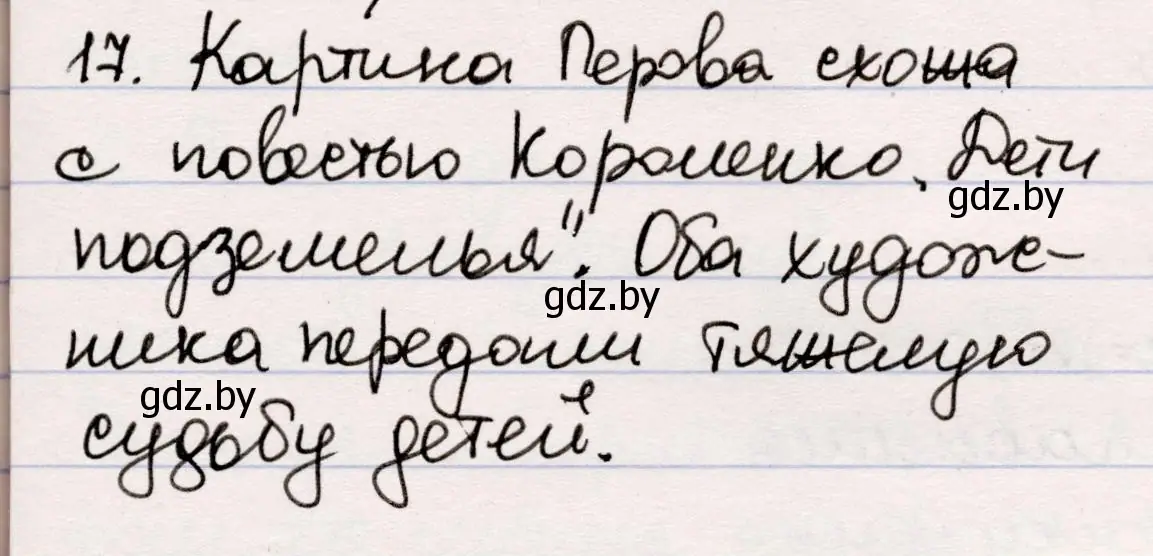 17. Картина Перова схожа
с повестью Короленко „Дети
gdz.by
подземелья". Оба худож-
gdz.by
ника передали тяжелую
gdz.by
судьбу детей.